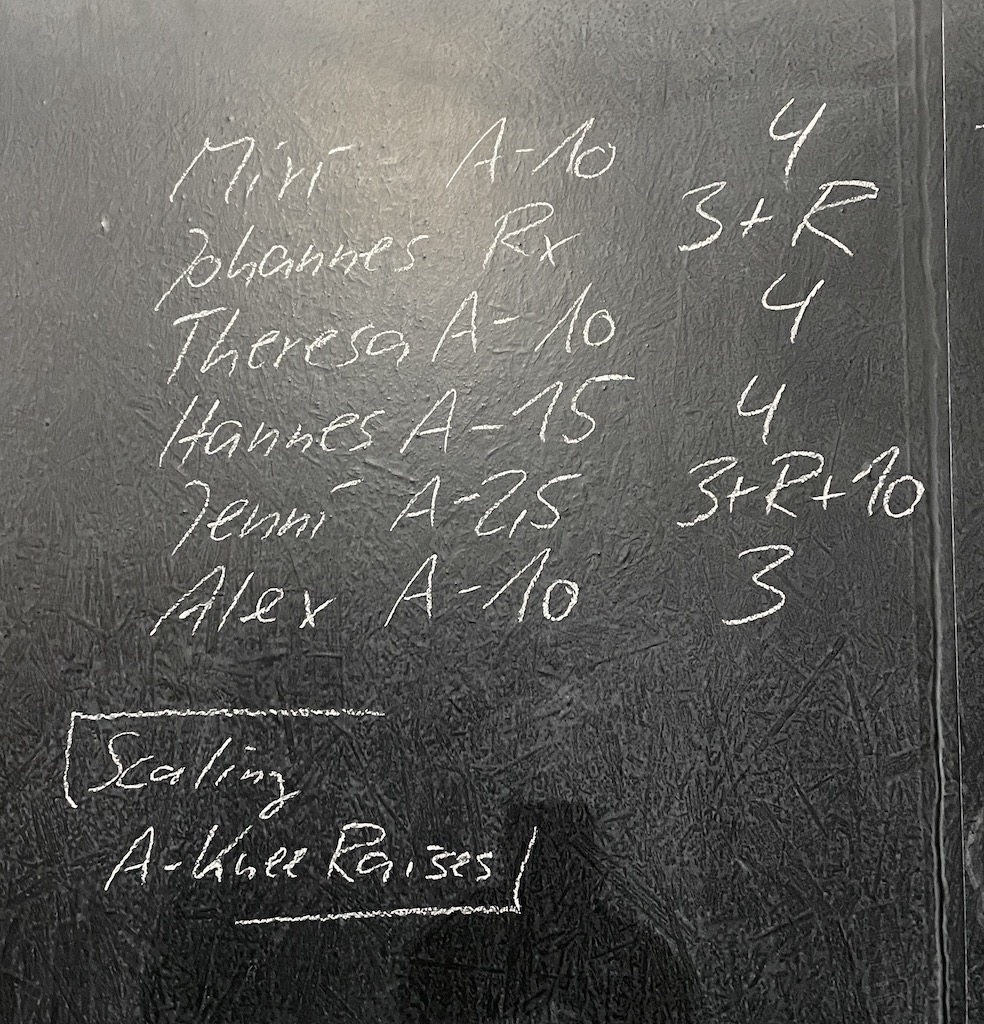 Miri A-10 4
Johannes Rx 3+R
Theresa A-10 4
Hannes A-15 4
Jenni A-2,5 3+R+10
Alex A-10 3
Scaling
A-Knee Raises